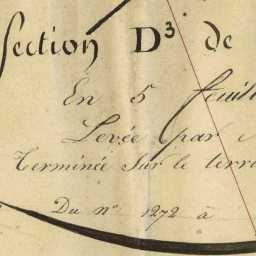 Section D³ de
En 5 feuil
Levée par
Terminée sur le terra
Du n° 1272 à